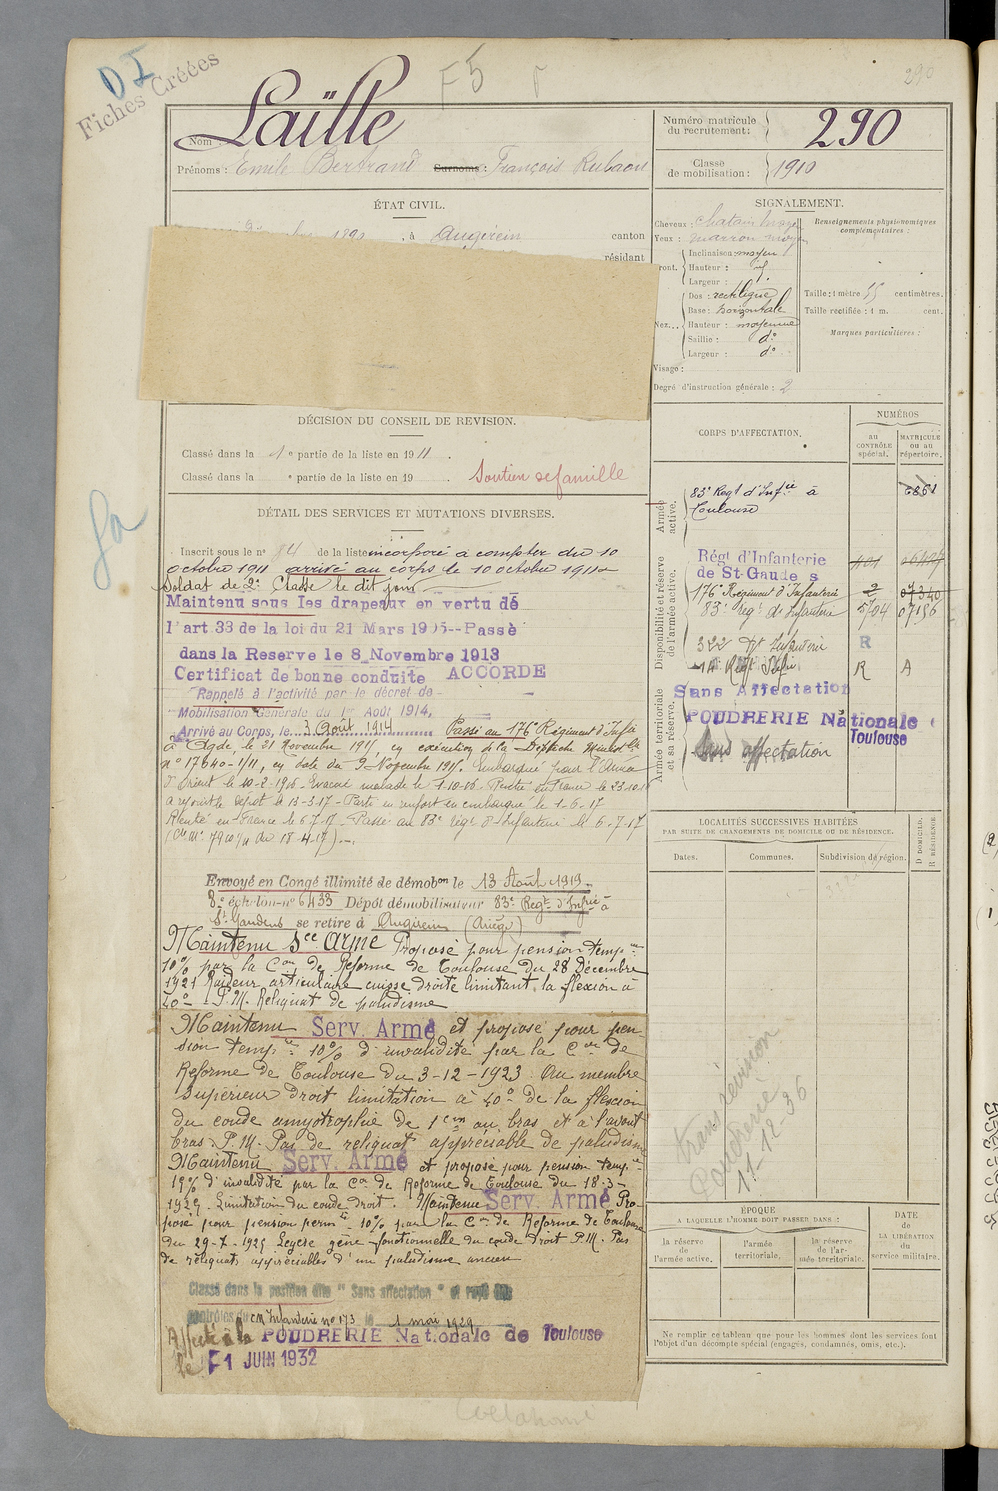 D I
Fiches Créées
F5
290
Nom : Laïlle
Numéro matricule du recrutement : 290
Prénoms : Emile Bertrand Surnoms : François
Classe de mobilisation : 1910
ÉTAT CIVIL.
à Augirein canton
résidant
SIGNALEMENT.
Cheveux : chatain moyen
Yeux : marron moyen
Front. Inclinaison : moyen
Hauteur :
Largeur :
Nez... Dos : rectiligne
Base : horizontale
Hauteur : moyenne
Saillie : d°
Largeur : d°
Visage :
Renseignements physionomiques complémentaires :
Taille : 1 mètre 55 centimètres.
Taille rectifiée : 1 m. cent.
Marques particulières :
Degré d'instruction générale : 2
DÉCISION DU CONSEIL DE REVISION.
Classé dans la 1e partie de la liste en 1911.
Classé dans la e partie de la liste en 19 Soutien de famille
DÉTAIL DES SERVICES ET MUTATIONS DIVERSES.
Inscrit sous le n° 84 de la liste incorporé à compter du 10
octobre 1911 arrivé au corps le 10 octobre 1911
Soldat de 2e Classe le dit jour
Maintenu sous les drapeaux en vertu de
l'art 33 de la loi du 21 Mars 1905--Passé
dans la Reserve le 8 Novembre 1913
Certificat de bonne conduite ACCORDE
Rappelé à l'activité par le décret de
Mobilisation Générale du 1er Août 1914,
Arrivé au Corps, le 3 Août 1914 Passé au 176e Régiment d'Infie
à Agde, le 21 Novembre 1915, en exécution de la Dépêche Minist lle
n° 17640-1/11, en date du 9 Novembre 1915. Embarqué pour l'Armée
d'Orient le 10-2-1916. Evacué malade le 1-10-16. Rentré en France le 23-10-16
a rejoint le dépôt le 13-3-17 - Parti en renfort en embarqué le 1-6-17
Rentré en France le 6-7-17 - Passé au 83e Régt d'Infanterie le 6-7-17
Envoyé en Congé illimité de démobon le 13 Août 1919
8e échelon n° 6433 Dépôt démobilisateur 83e Regt d'Infie à
St Gaudens se retire à Augirein (Ariège)
Maintenu Sce Armé Proposé pour pension tempre
10% par la Con de Réforme de Toulouse du 28 Décembre
1921 Raideur articulaire cuisse droite limitant la flexion à
40° - P.M. Reliquat de paludisme
Maintenu Serv. Armé et proposé pour pen
sion tempre 10% d'invalidité par la Con de
Réforme de Toulouse du 3-12-1923 Au membre
supérieur droit limitation à 40° de la flexion
du coude amyotrophie de 1cm au bras et à l'avant
bras. P.M. Pas de reliquat appréciable de paludisme
Maintenu Serv. Armé et proposé pour pension tempre
10% d'invalidité par la Con de Réforme de Toulouse du 18-3-
1925. Limitation du coude droit. Maintenu Serv. Armé Pro-
posé pour pension permte 10% par la Con de Réforme de Toulouse
du 29-7-1925 Légère gêne fonctionnelle du coude droit P.M. Pas
de reliquats appréciables d'un paludisme ancien
Classé dans la position dite "Sans affectation" et rayé des
contrôles du CM Infanterie n° 173 le 1 mai 1929
Affecté à la POUDRERIE Nationale de Toulouse
le 1 JUIN 1932
CORPS D'AFFECTATION.
NUMÉROS
au CONTRÔLE spécial.
MATRICULE ou au répertoire.
Armée active.
83e Regt d'Infie à Toulouse
Disponibilité et réserve de l'armée active.
Régt d'Infanterie
de St-Gaudens
176e Régiment d'Infanterie 2 07340
83e régt d'Infanterie 5704 07156
322 Rt Infanterie R
14 Regt Infie R A
Armée territoriale et sa réserve.
Sans Affectation
POUDRERIE Nationale
Toulouse
Sans affectation
LOCALITÉS SUCCESSIVES HABITÉES
PAR SUITE DE CHANGEMENTS DE DOMICILE OU DE RÉSIDENCE.
Dates. Communes. Subdivision de région. D DOMICILE. R RÉSIDENCE
trans révision
Poudrerie
11-12-36
ÉPOQUE
A LAQUELLE L'HOMME DOIT PASSER DANS :
la réserve de l'armée active.
l'armée territoriale.
la réserve de l'armée territoriale.
DATE de LA LIBÉRATION du service militaire.
Ne remplir ce tableau que pour les hommes dont les services font
l'objet d'un décompte spécial (engagés, condamnés, omis, etc.).